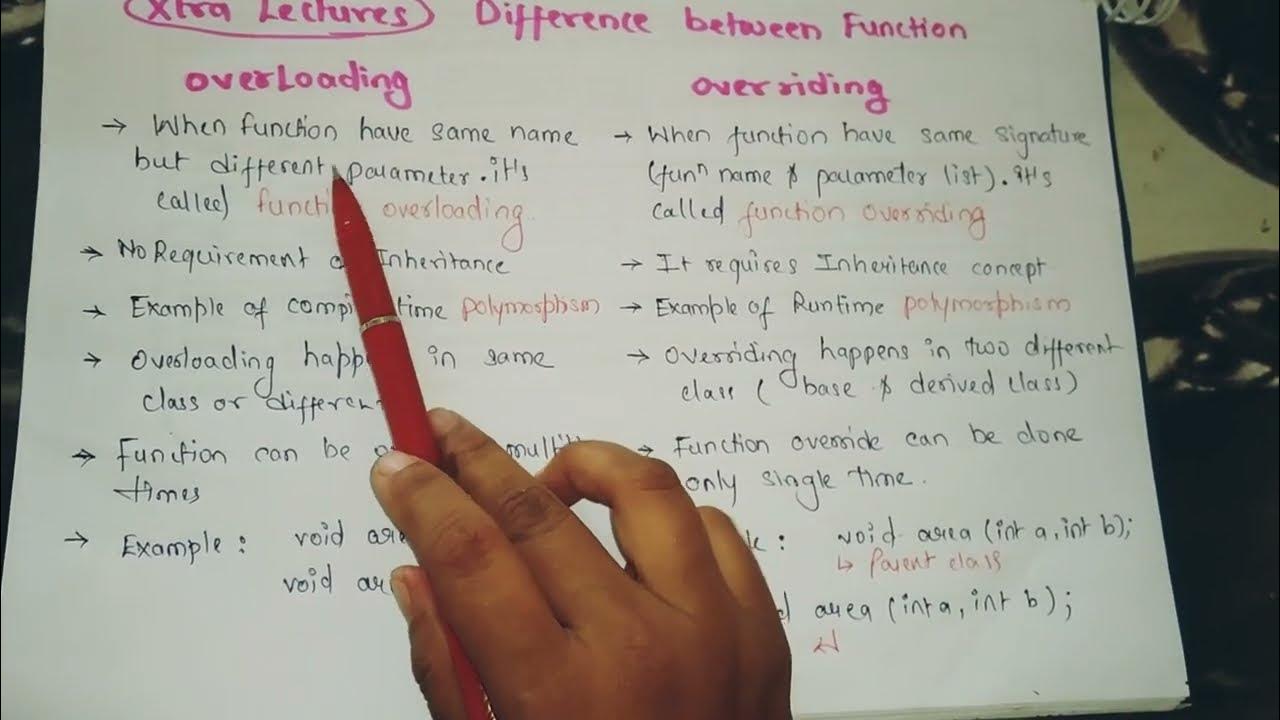 Xtra Lectures Difference between Function
overLoading
→ When function have same name
but different parameter. it's
called function overloading
→ No Requirement Inheritance
→ Example of time polymorphism
→ Overloading in same
class or
→ Function can be
times
→ Example : void
void
overriding
→ When function have same signature
(funⁿ name & parameter list). it's
called function overriding
→ It requires Inheritance concept
→ Example of Runtime polymorphism
→ Overriding happens in two different
class ( base & derived class)
→ Function override can be done
only single time.
: void area (int a, int b);
↳ Parent class
area (int a, int b);